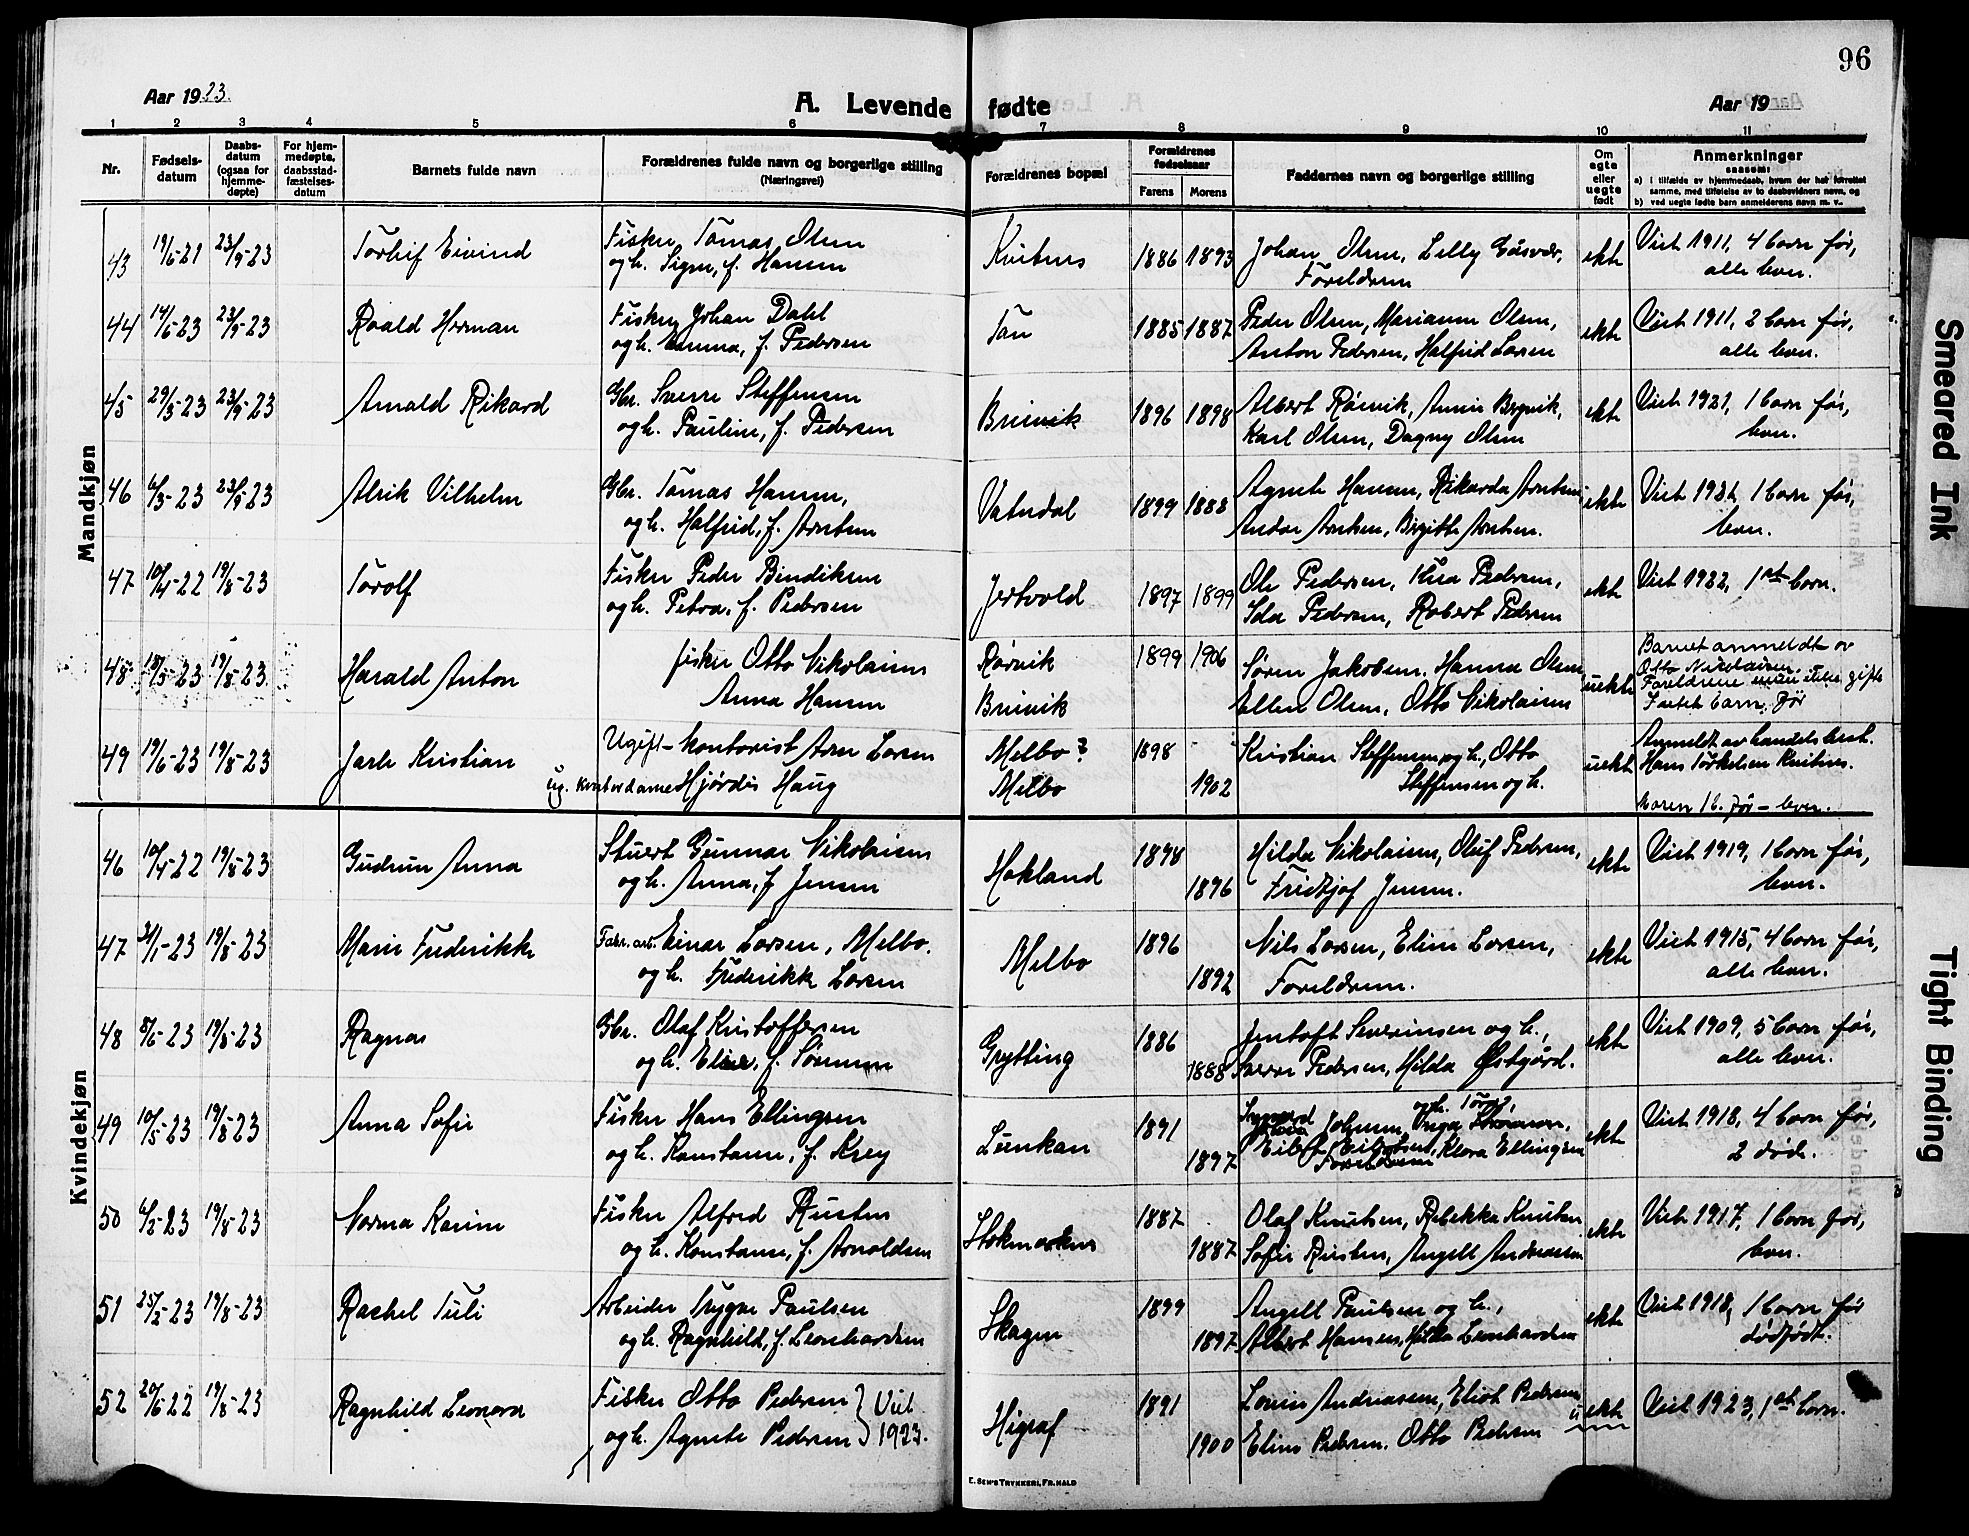 96
Aar 1923.
A. Levende fødte
Aar 19
1 2 3 4 5 6 7 8 9 10 11
Nr.
Fødsels-
datum
Daabs-
datum
(ogsaa for
hjemme-
døpte)
For hjem-
medøpte,
daabsstad-
fæstelses-
datum
Barnets fulde navn
Forældrenes fulde navn og borgerlige stilling
(Næringsvei)
Forældrenes bopæl
Forældrenes
fødselsaar
Farens Morens
Faddernes navn og borgerlige stilling
Om
egte
eller
uegte
født
Anmerkninger
saasom:
a) i tilfælde av hjemmedaab, hvem der har forrettet
samme, med tilføielse av to daabsvidners navn, og
b) ved uegte fødte barn anmelderens navn m. v.
Mandkjøn
43 19/6-21 23/9-23 Torleif Eivind Fisker Tomas Olsen Kvitnes 1886 1893 Johan Olsen, Lilly Gåsvær, ekte Viet 1911, 4 born før,
og h. Signe, f. Hansen Foreldrene alle lever.
44 14/6-23 23/9-23 Roald Herman Fisker Johan Dahl Tan 1885 1887 Peder Olsen, Marianne Olsen, ekte Viet 1911, 2 born før,
og h. Emma, f. Pedersen Anton Pedersen, Halfrid Larsen alle lever.
45 29/3-23 23/9-23 Arnold Rikard Gbr. Sverre Steffensen Breivik 1896 1898 Albert Rørvik, Annie Bergvik, ekte Viet 1921, 1 born før,
og h. Pauline, f. Pedersen Karl Olsen, Dagny Olsen lever.
46 6/3-23 23/9-23 Alrik Vilhelm Gbr. Tomas Hansen, Vatndal 1899 1888 Agnete Hansen, Rikarda Arntsen ekte Viet 1921, 1 born før,
og h. Halfrid, f. Arntsen Andor Arntsen, Birgitte Arntsen. lever.
47 10/4-22 19/8-23 Torolf Fisker Peder Bendiksen Jertvold 1897 1899 Ole Pedersen, Pedersen, ekte Viet 1922, 1ste born.
og h. Petra, f. Pedersen Ida Pedersen, Robert Pedersen
48 18/5-23 19/8-23 Harald Anton fisker Otto Nikolaisen Rørvik 1899 1906 Søren Jakobsen, Hanna Olsen uekte Barnet anmeldt av
Otto Nicolaisen.
Anna Hansen Breivik Ellen Olsen, Otto Nikolaisen Foreldrene gifte
barn før
49 19/6-23 19/8-23 Jarle Kristian Ugift kontorist Arne Larsen Melbo? 1898 Kristian Steffensen og h., Otto uekte Anmeldt av handelsbest.
ug. kontordame Hjørdis Haug Melbo 1902 Steffensen og h. Hans Torkelsen Kvitnes.
Moren 1 b. før – lever.
Kvindekjøn
46 10/4-22 19/8-23 Gudrun Anna Stuert Gunnar Nikolaisen Hokland 1898 Hilda Nikolaisen, Oluf Pedersen, ekte Viet 1919, 1 born før,
og h. Anna, f. Jensen 1896 Fridtjof Jensen. lever.
47 31/1-23 19/8-23 Marie Frederikke Fabr. arb. Einar Larsen, Melbo. Melbo 1896 Nils Larsen, Eline Larsen, ekte Viet 1915, 4 born før,
og h. Frederikk Larsen 1892 Foreldrene. alle lever.
48 8/6-23 19/8-23 Ragna Gbr. Olaf Kristoffersen Grytting 1886 Jentoft Severinsen og h., ekte Viet 1909, 5 born før,
og h. Eline, f. Sørensen 1888 Sverre Pedersen, Hilda Østgård. alle lever.
49 10/5-23 19/8-23 Anna Sofie Fisker Hans Ellingsen Lunkan 1891 og h. Tora, ekte Viet 1918, 4 born før,
Johnsen, Inga
og h. Konstanse, f. Krey 1897 Eilert Eilertsen, Klara Ellingsen 2 døde.
Foreldrene
50 6/2-23 19/8-23 Norma Karine Fisker Alfred Rusten Stokmarknes 1887 Olaf Knutsen, Rebekka Knutsen ekte Viet 1917, 1 born før,
og h. Konstanse, f. Arnoldsen 1887 Sofie Rusten, Angell Andreassen lever.
51 25/2-23 19/8-23 Rachel Juli Arbeider Trygve Paulsen Skagen 1899 Angell Paulsen og h., ekte Viet 1918, 1 born før
og h. Ragnhild, f. Leonhardsen 1897 Albert Hansen, Hilda Leonhardsen dødfødt.
52 20/6-22 19/8-23 Ragnhild Leonora Fisker Otto Pedersen } Viet Higraf 1891 Lovise Andreasen, Eliot Pedersen uekte Viet 1923, 1ste born.
og h. Agnete Pedersen } 1923. 1900 Eline Pedersen. Otto Pedersen
E. SEM'S TRYKKERI, FR.HALD
Smeared Ink
Tight Binding